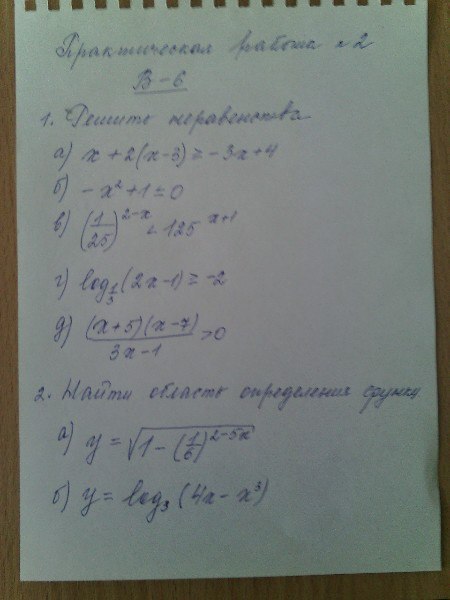 Практическая работа №2
В-6
1. Решить неравенства
а) x + 2(x-3) ≥ -3x+4
б) -x² + 1 ≤ 0
в) (1/25)^(2-x) < 125^(x+1)
г) log_(1/3) (2x-1) ≥ -2
д) (x+5)(x-7)/(3x-1) > 0
2. Найти область определения функци
а) y = √(1-(1/6)^(2-5x))
б) y = log₃ (4x - x³)